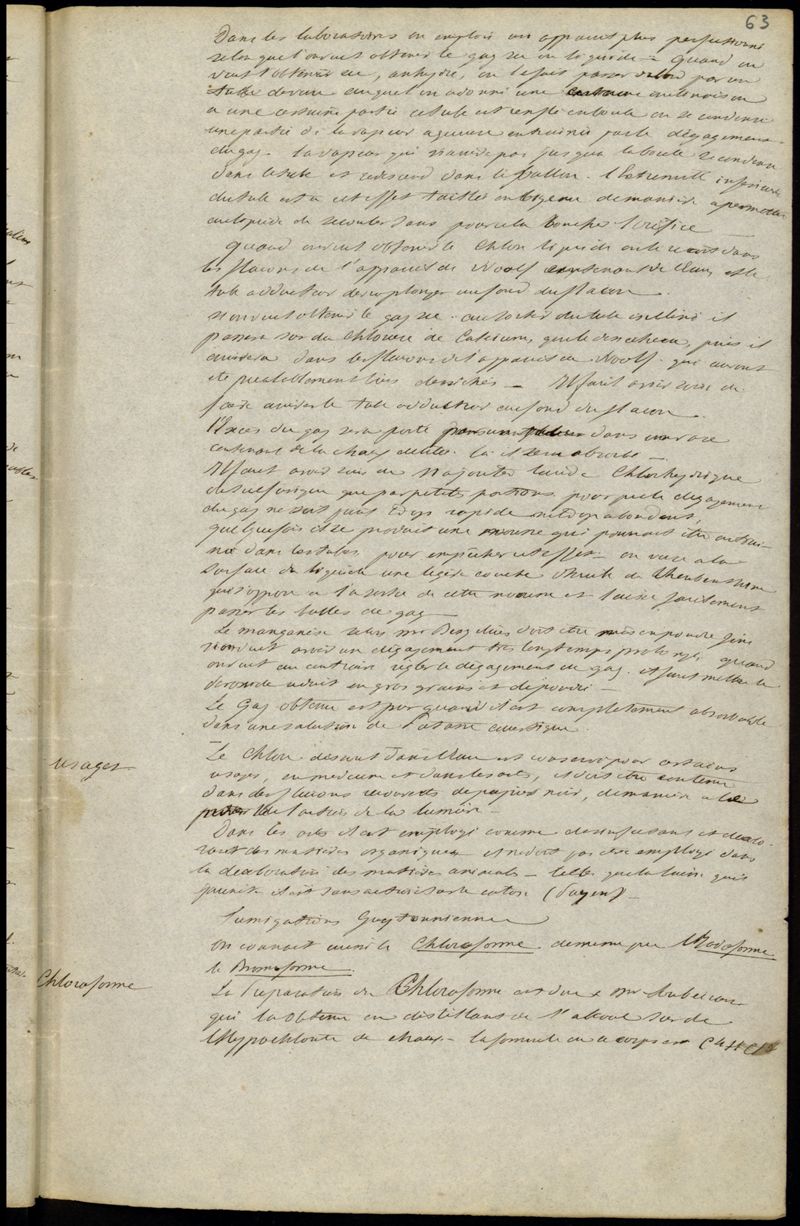 63
Dans les laboratoires on emploie un appareil plus perfectionné
selon que l'on veut obtenir le gaz sec ou liquide - Quand on
veut l'obtenir sec, anhydre, on le fait passer par un
tube auquel on a donné une inclinaison
a une certaine partie ce tube est renflé en boule ou se condense
une partie de la vapeur aqueuse entrainée par le dégagement
du gaz. La vapeur qui n'arrive pas jusqu'a la boule se condense
dans le tube et redescend dans le ballon. l'Extremité inférieure
du tube est a cet effet taillée en biseau de manière a permettre
au liquide de s'écouler sans pour cela boucher l'orifice
Quand on veut obtenir le Chlore liquide on le reçoit dans
les flacons de l'appareil de Woolf contenant de l'eau, et le
tube adducteur devra plonger au fond du flacon.
si on veut obtenir le gaz sec. au sortir du tube incliné il
passera sur du Chlorure de Calcium, qui le dessechera, puis il
arrivera dans les flacons de l'appareil de Woolf. qui auront
été préalablement bien dessechés - Il faut avoir soin de
faire arriver le tube adducteur au fond du flacon.
l'Exces du gaz sera porté dans un vase
contenant de la chaux délitée. là il sera absorbé -
Il faut avoir soin de n'ajouter l'acide Chlorhydrique
ou sulfurique que par petites portions, pour que le dégagement
du gaz ne soit pas trop rapide ni trop abondant,
quelquefois il se produit une mousse qui pourrait être entrai-
née dans les tubes. pour empêcher cet effet - on verse a la
surface du liquide une légère couche d'huile de Thérébenthine
qui s'oppose a la sortie de cette mousse et laisse facilement
passer les bulles de gaz -
Le manganèse selon mr doit être mis en poudre fine
si on veut avoir un dégagement très longtemps prolongé, quand
on veut au contraire régler le dégagement de gaz. il faut mettre le
réduit en gros grains et dépoudré -
Le Gaz obtenu est pur quand il est complètement absorbable
dans une solution de Potasse caustique.
usages
Le Chlore dissout dans l'eau est conservé pour certains
usages, en médecine et dans les arts, il doit être contenu
dans des flacons recouverts de papier noir, de manière a le
de l'action de la lumière -
Dans les arts il est employé comme désinfectant et décolo-
rant des matières organiques il ne doit pas être employé dans
la décoloration des matières animales - telles que la laine qu'il
jaunit il est sans action sur le coton (Payen) -
fumigations Guytonniennes
On connait aussi le Chloroforme de même que l'Iodoforme
le Bromoforme.
Chloroforme
La Préparation du Chloroforme est due a mr Soubeiran
qui l'a obtenu en distillant de l'alcool sur de
l'Hypochlorite de chaux - la formule de ce corps est